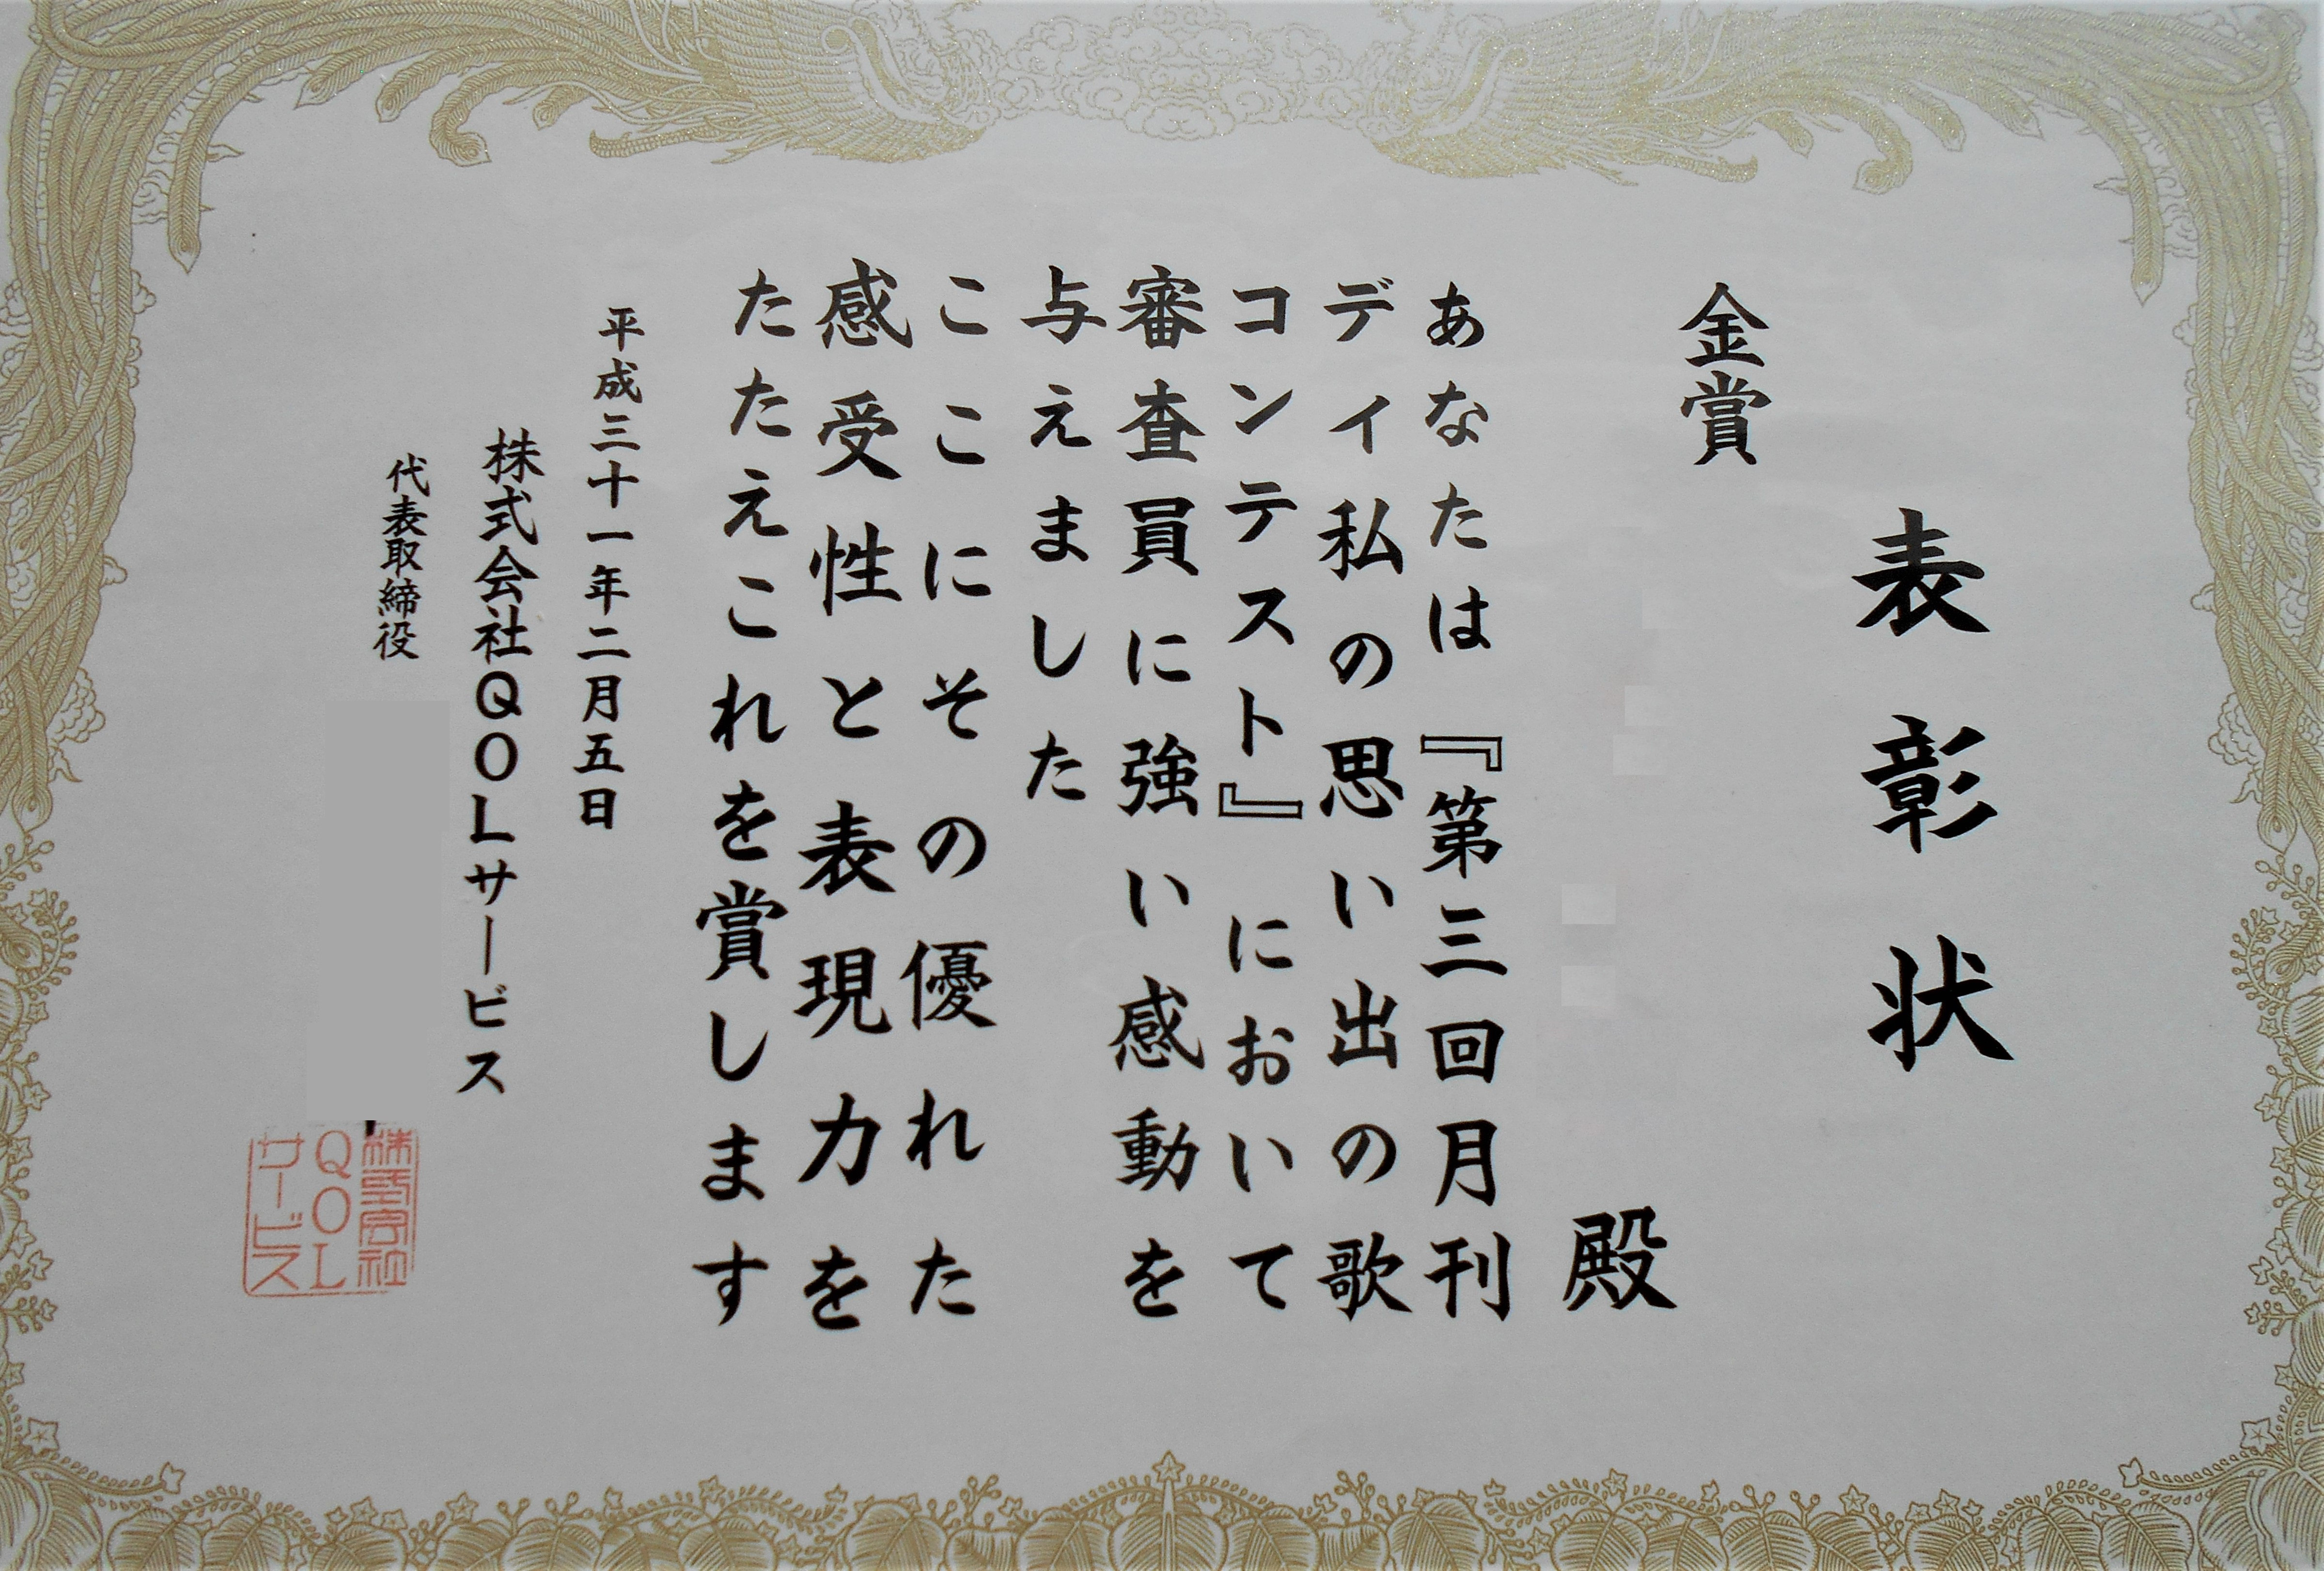 表彰状
金賞
殿
あなたは『第三回月刊
ディ私の思い出の歌
コンテスト』において
審査員に強い感動を
与えました
ここにその優れた
感受性と表現力を
たたえこれを賞します
平成三十一年二月五日
株式会社QOLサービス
代表取締役
株式会社
QOL
サービス